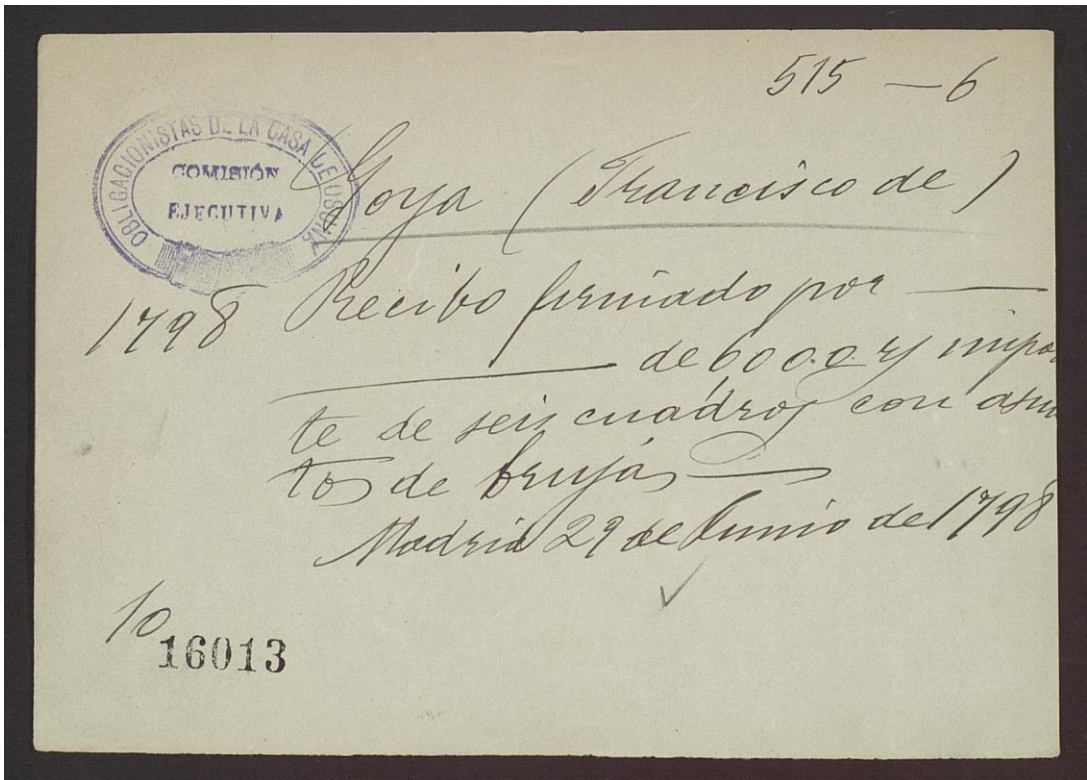 515 — 6
OBLIGACIONISTAS DE LA CASA DE OSUNA
COMISIÓN
EJECUTIVA
Goya (Francisco de)
1798 Recibo firmado por —
— de 6000 rs impor
te de seis cuadros con asun
tos de brujas —
Madrid 29 de Junio de 1798
10
16013